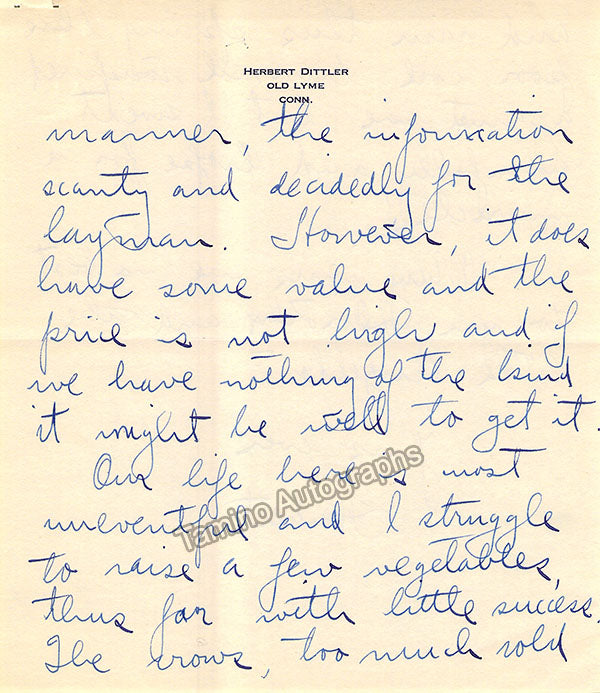 HERBERT DITTLER
OLD LYME
CONN.
manner, the information
scanty and decidedly for the
layman. However, it does
have some value and the
price is not high and if
we have nothing of the kind
it might be well to get it.
Our life here is most
uneventful and I struggle
to raise a few vegetables,
thus far with little success.
The crows, too much cold
Tamino Autographs